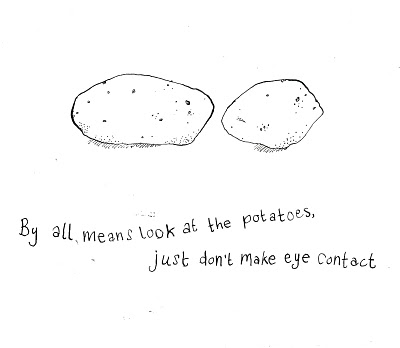 By all means look at the potatoes,
just don't make eye contact